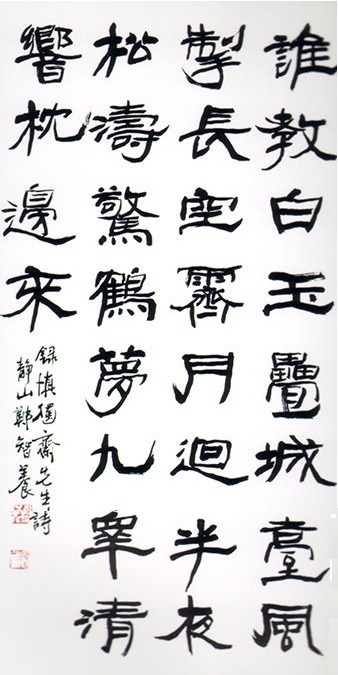 誰教白玉疊城臺風
掣長空霽月迴半夜
松濤驚鶴夢九皐清
響枕邊來
錄愼獨齋先生詩
靜山鄭智養